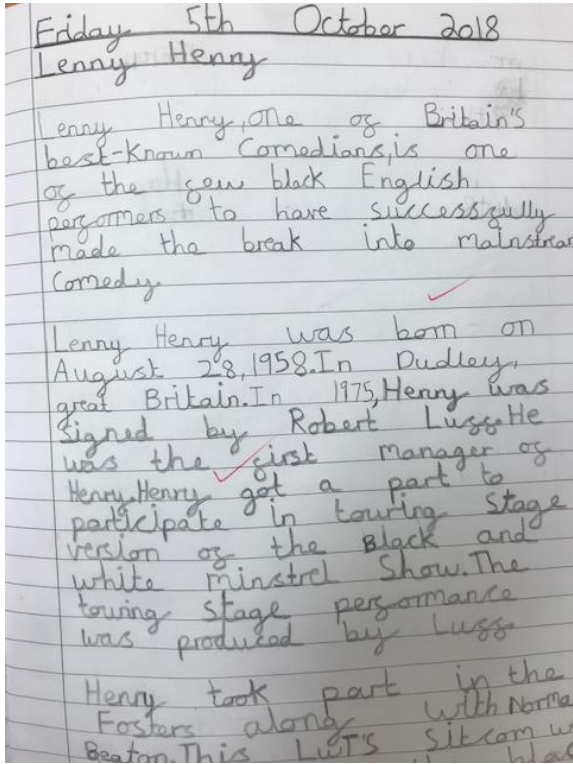 Friday 5th October 2018
Lenny Henry
Lenny Henry, one of Britain's
best-known Comedians, is one
of the few black English
performers to have successfully
made the break into mainstream
Comedy.
Lenny Henry was born on
August 28, 1958. In Dudley,
great Britain. In 1975, Henry was
signed by Robert Luff. He
was the first manager of
Henry. Henry got a part to
participate in touring Stage
version of the Black and
white minstrel Show. The
touring stage performance
was produced by Luff
Henry took part in the
Fosters along with Norma
Beaton. This LWT'S sitcom